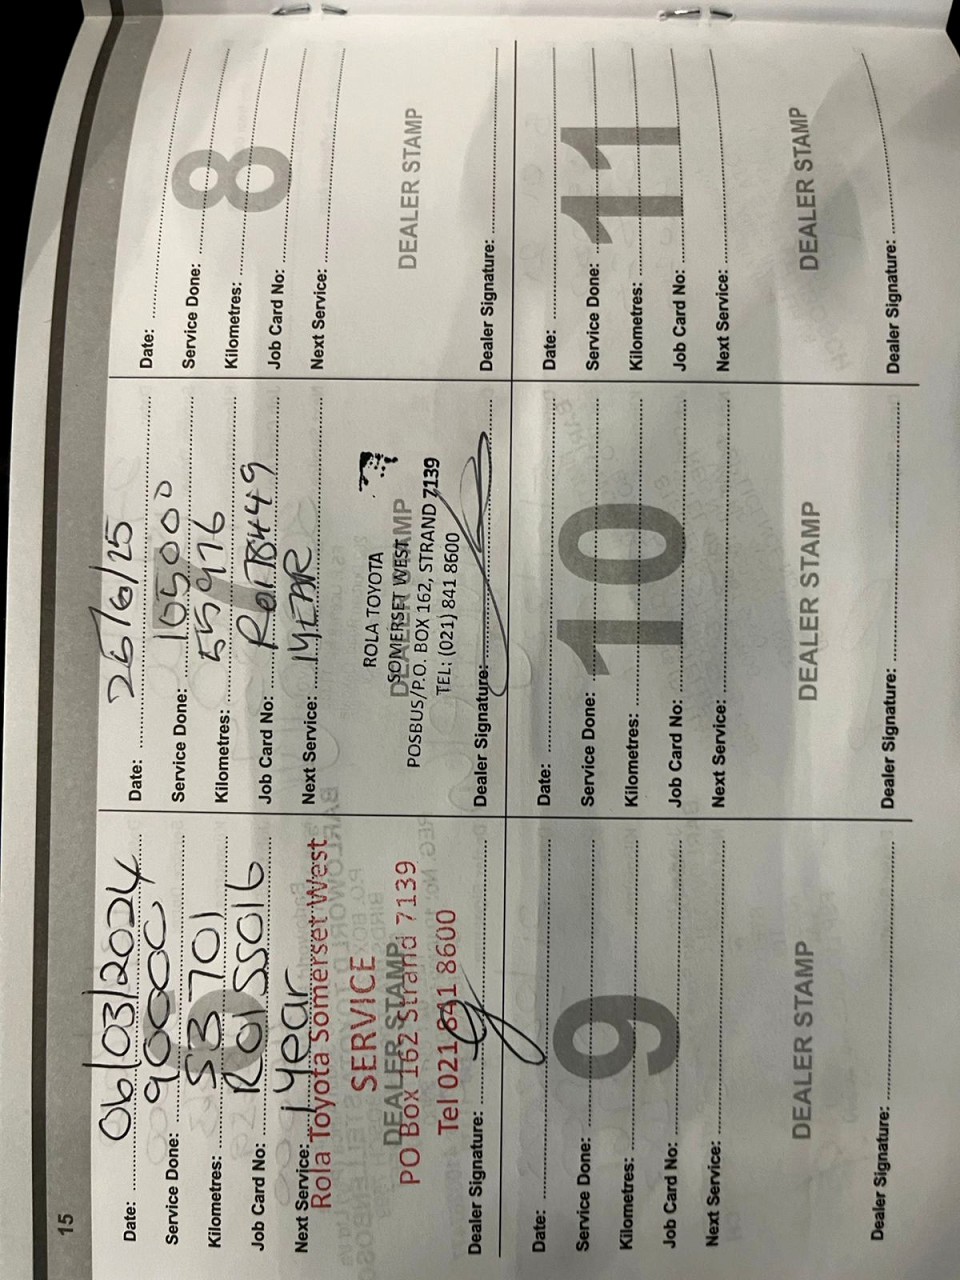 15
Date: 06/03/2024
Service Done: 90000
Kilometres: 53701
Job Card No: R0155016
Next Service: 1 year
Rola Toyota Somerset West
SERVICE
DEALER STAMP
PO Box 162 Strand 7139
Tel 021 841 8600
Dealer Signature:
Date: 26/6/25
Service Done: 105000
Kilometres: 55976
Job Card No:
Next Service: 1 YEAR
ROLA TOYOTA
SOMERSET WEST
DEALER STAMP
POSBUS/P.O. BOX 162, STRAND 7139
TEL: (021) 841 8600
Dealer Signature:
8
Date:
Service Done:
Kilometres:
Job Card No:
Next Service:
DEALER STAMP
Dealer Signature:
9
Date:
Service Done:
Kilometres:
Job Card No:
Next Service:
DEALER STAMP
Dealer Signature:
10
Date:
Service Done:
Kilometres:
Job Card No:
Next Service:
DEALER STAMP
Dealer Signature:
11
Date:
Service Done:
Kilometres:
Job Card No:
Next Service:
DEALER STAMP
Dealer Signature: